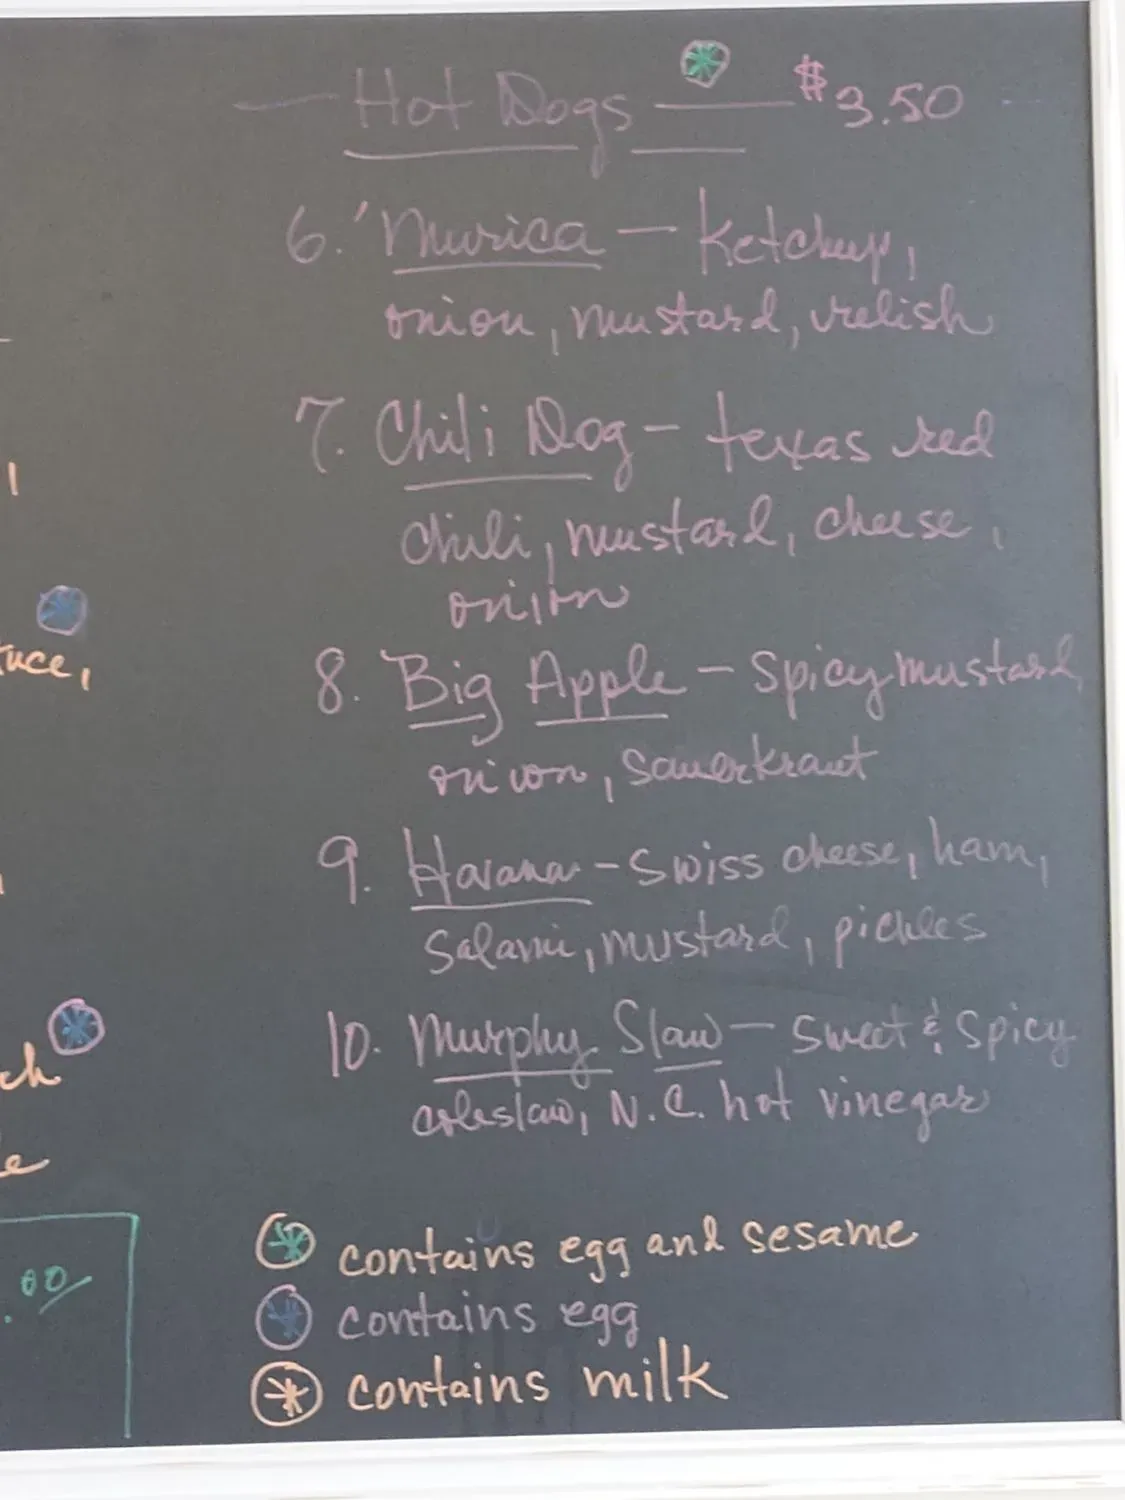 Hot Dogs — $3.50
6. 'Murica — Ketchup,
onion, mustard, relish
7. Chili Dog - texas red
chili, mustard, cheese,
onion
8. Big Apple - Spicy mustard,
onion, Sauerkraut
9. Havana - Swiss cheese, ham,
Salami, mustard, pickles
10. Murphy Slaw - Sweet & Spicy
coleslaw, N.C. hot vinegar
contains egg and sesame
contains egg
contains milk
.00